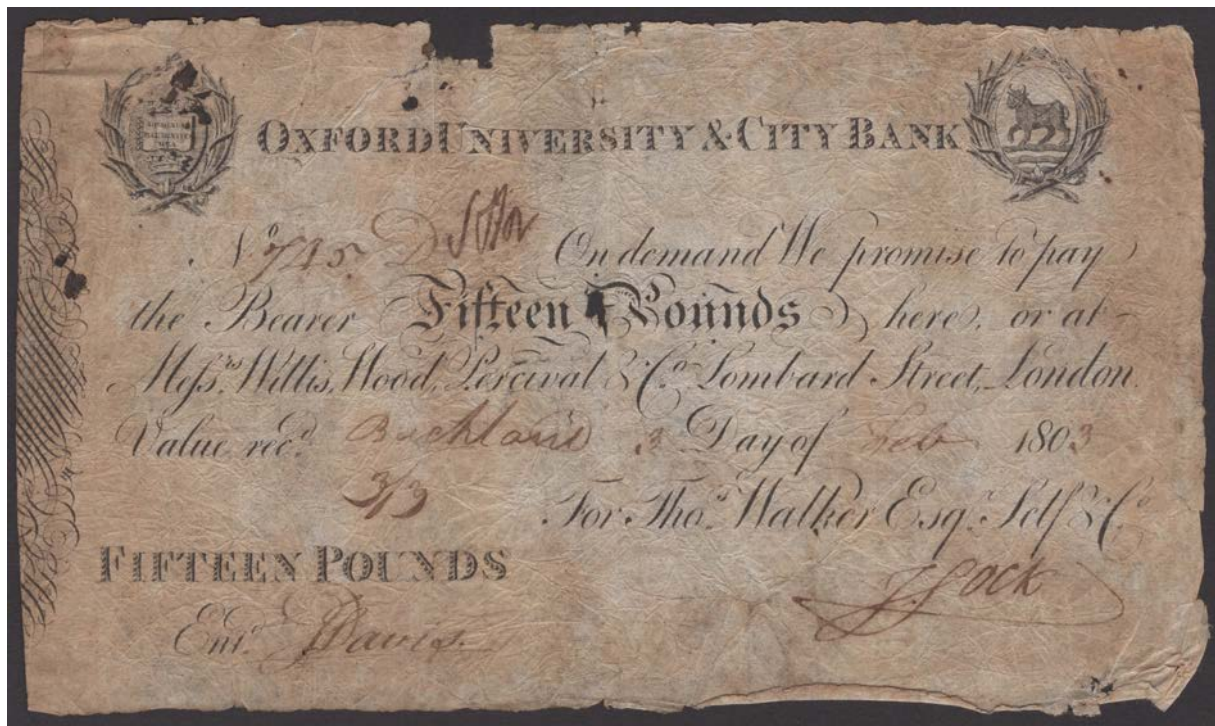 OXFORD UNIVERSITY & CITY BANK
No 745. D On demand We promise to pay
the Bearer Fifteen Pounds here, or at
Messrs Willis, Wood, Percival & Co. Lombard Street, London.
Value recd. Buckland 3 Day of Feb 1803
3/3 For Thos. Walker Esqr. Self & Co.
FIFTEEN POUNDS
J Lock
Entd. J Davis.